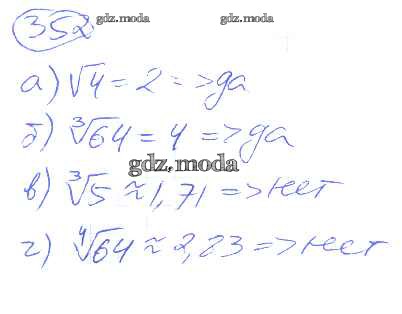 352 gdz.moda gdz.moda
а) √4 = 2 => да
б) ∛64 = 4 => да
gdz.moda
в) ∛5 ≈ 1,71 => нет
г) ∜64 ≈ 2,23 => нет